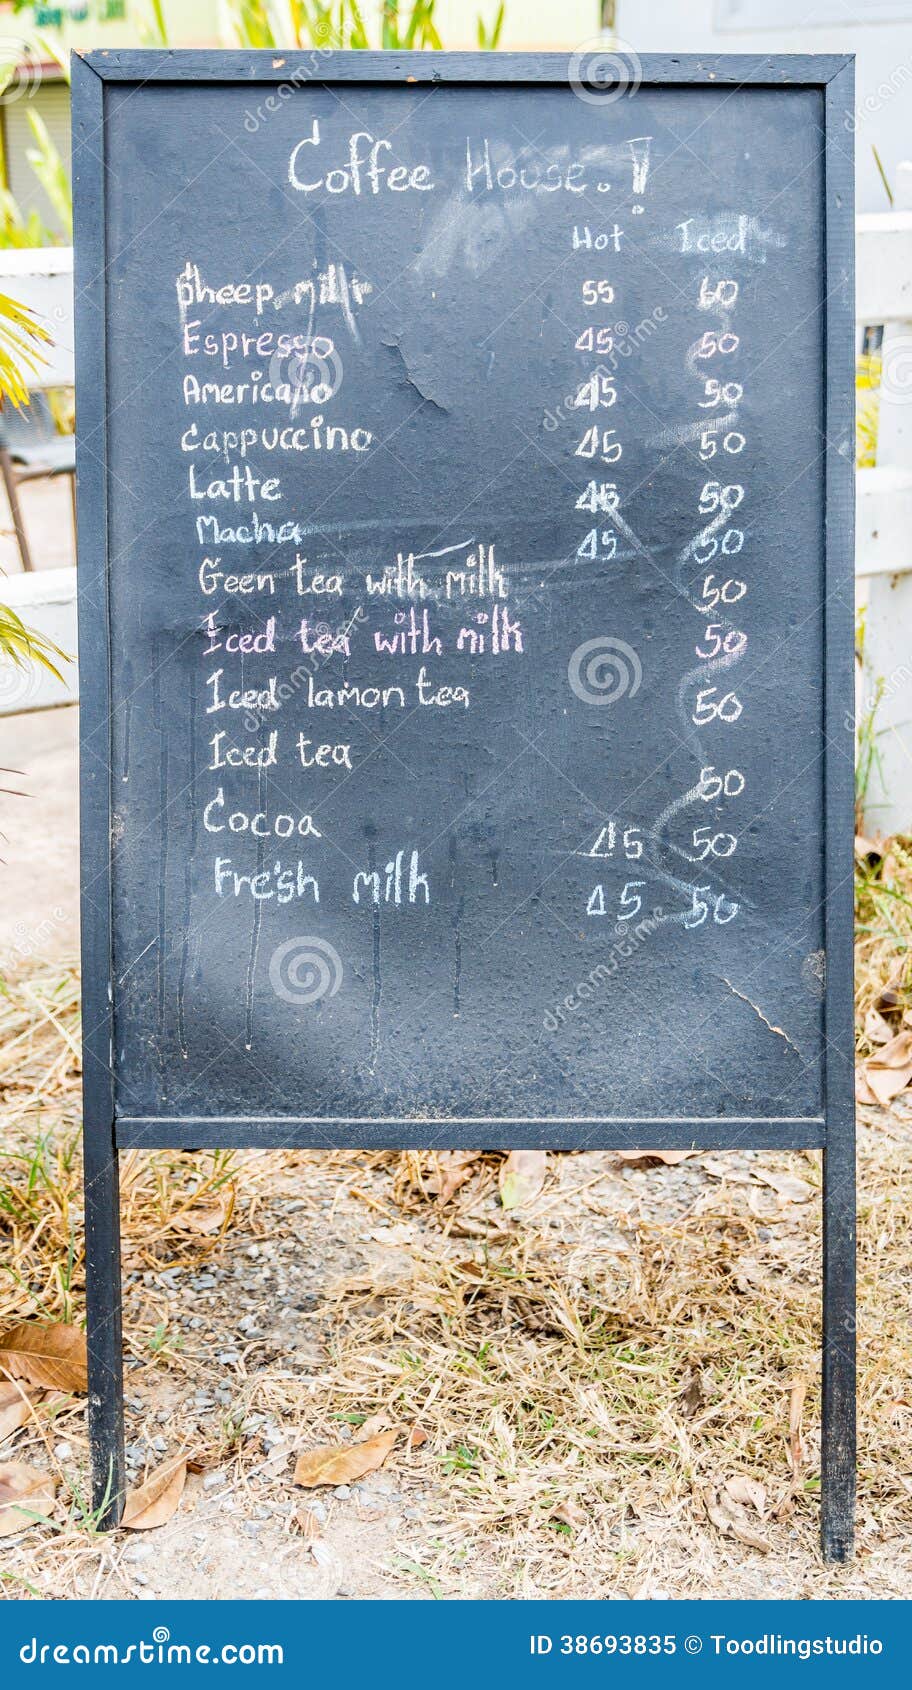 Coffee House.!
Hot Iced
Sheep milk 55 60
Espresso 45 50
Americano 45 50
Cappuccino 45 50
Latte 45 50
Macha 45 50
Geen tea with milk 50
Iced tea with milk 50
Iced lamon tea 50
Iced tea 50
Cocoa 45 50
Fresh milk 45 50
dreamstime.com ID 38693835 © Toodlingstudio